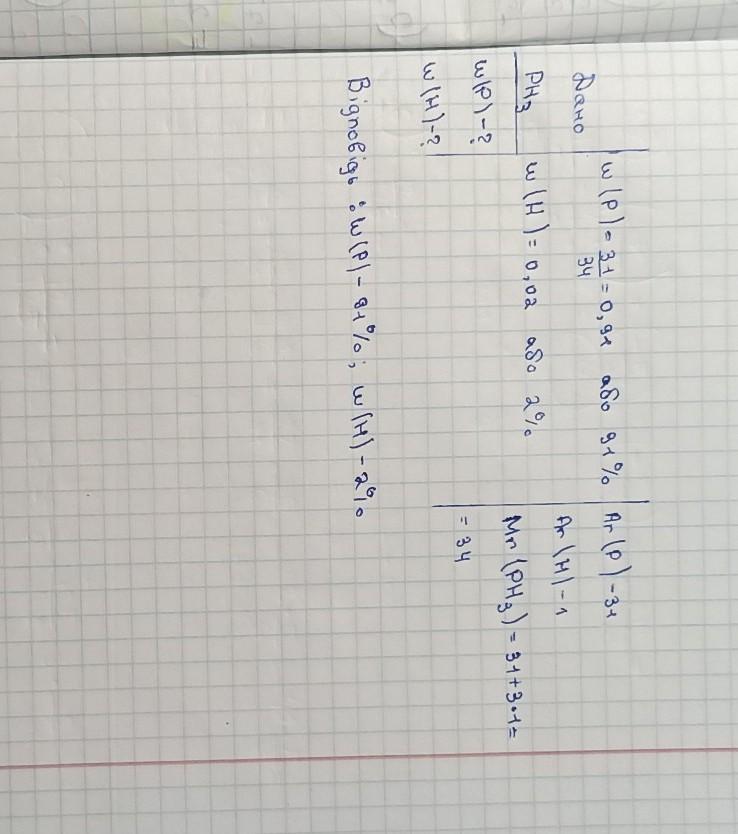 Дано
PH3
w(P)-?
w(H)-?
w(P)=31/34=0,91 або 91%
w(H)=0,02 або 2%
Ar(P)-31
Ar(H)-1
Mr(PH3)=31+3·1=
=34
Відповідь: w(P)-91%; w(H)-2%